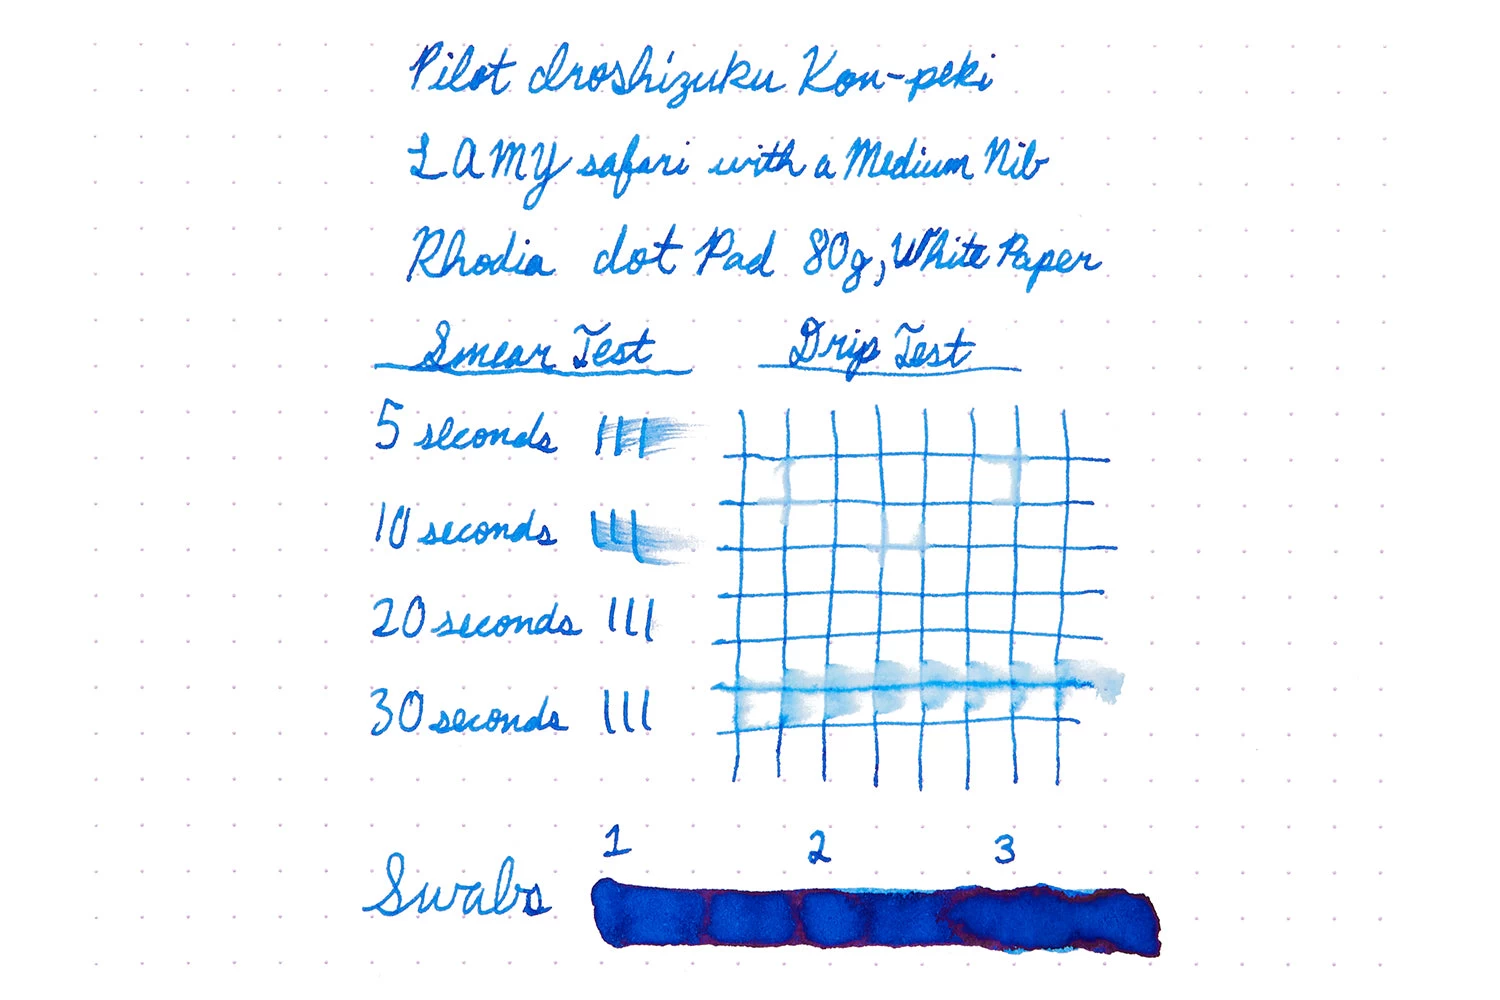 Pilot Iroshizuku Kon-peki
LAMY safari with a Medium Nib
Rhodia dot Pad 80g, White Paper
Smear Test Drip Test
5 seconds
10 seconds
20 seconds
30 seconds
1 2 3
Swabs